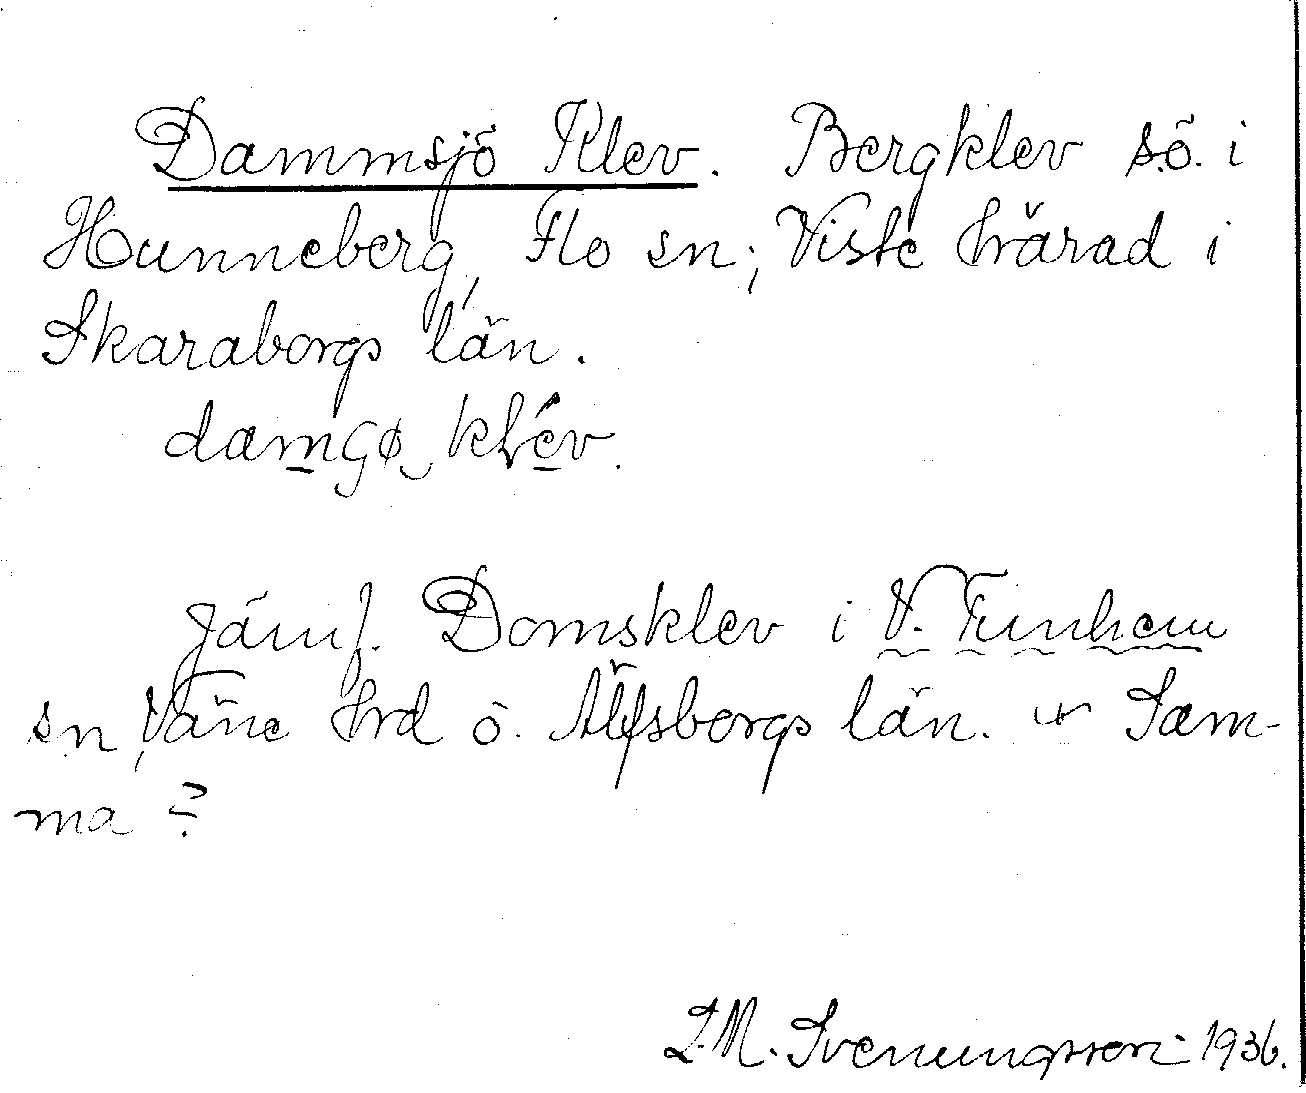 Dammsjö Klev. Bergklev s.ö. i
Hunneberg, Flo sn; Viste härad i
Skaraborgs län.
damgø klév.
Jämf. Domsklev i V. Tunhem
sn, Väne hrd ö. Älfsborgs län. Sam-
ma ?
L.M. Svenungsson 1936.